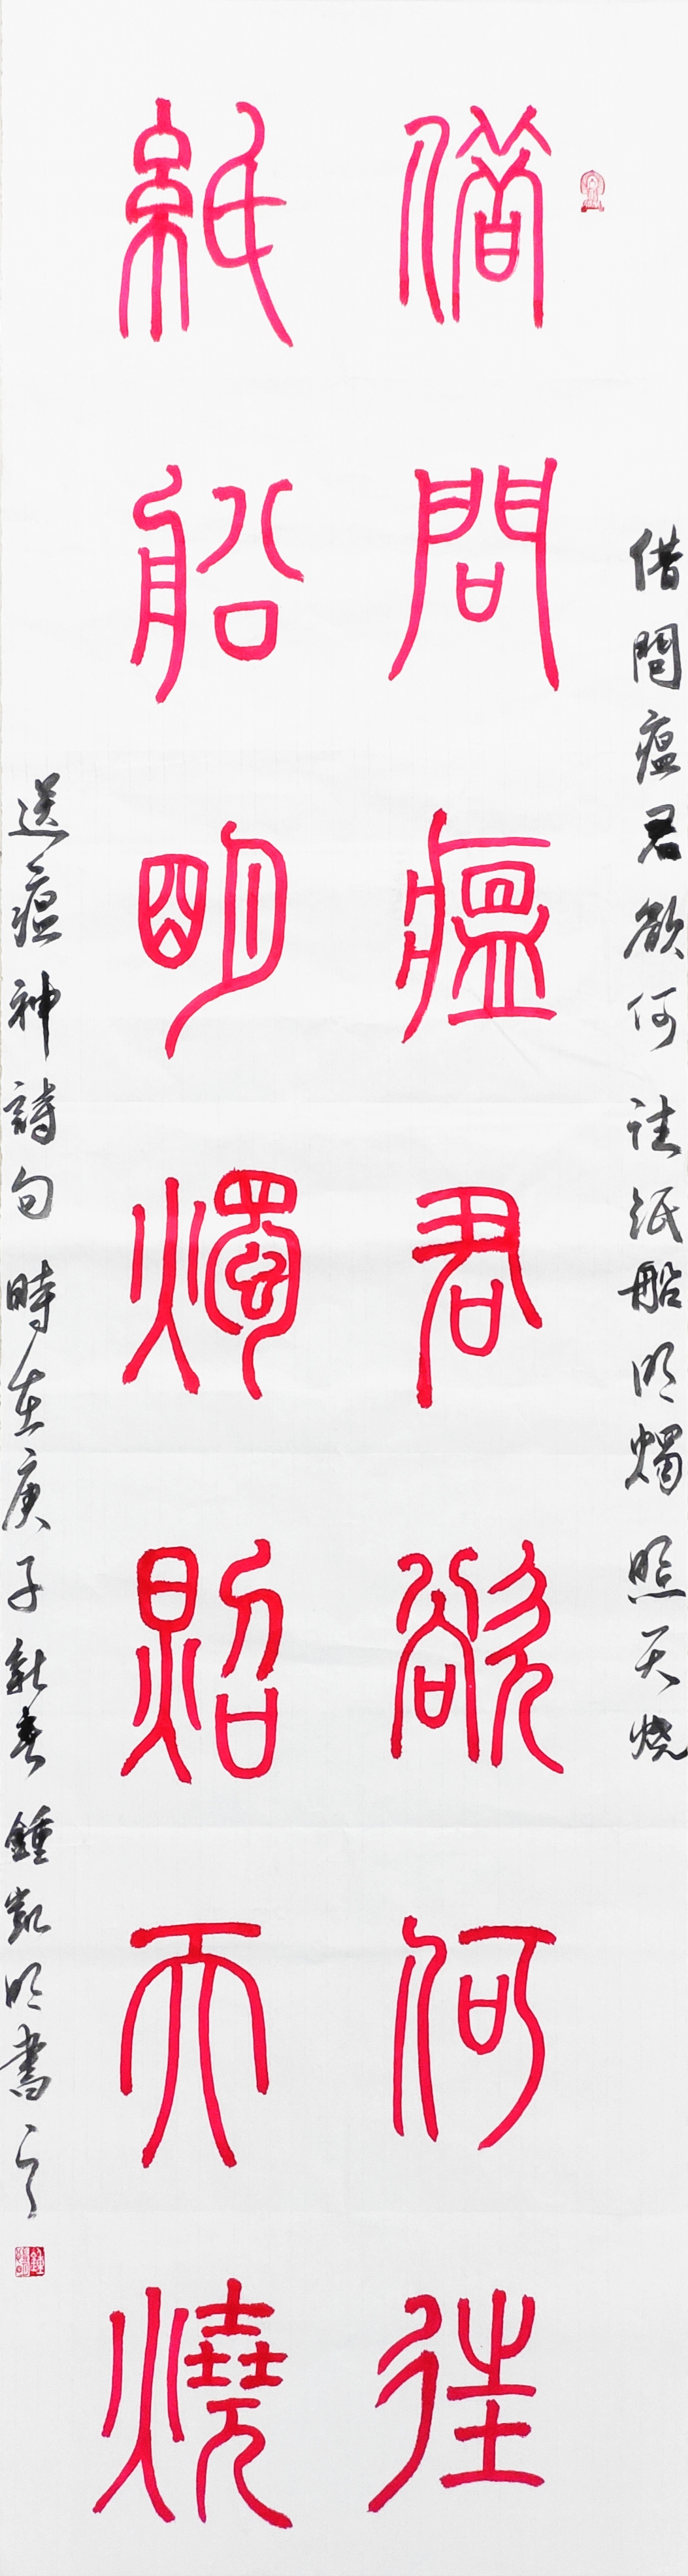 借問瘟君欲何往紙船明燭照天燒
借問瘟君欲何往
紙船明燭照天燒
送瘟神詩句時在庚子新春鍾凱明書